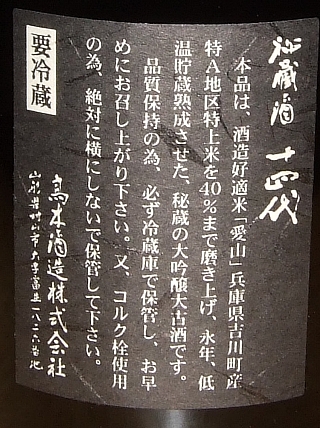 秘蔵酒 十四代
本品は、酒造好適米「愛山」兵庫県吉川町産
特A地区特上米を40%まで磨き上げ、永年、低
温貯蔵熟成させた、秘蔵の大吟醸大古酒です。
品質保持の為、必ず冷蔵庫で保管し、お早
めにお召し上がり下さい。又、コルク栓使用
の為、絶対に横にしないで保管して下さい。
要冷蔵
高木酒造株式会社
山形県村山市大字富並一八二六番地